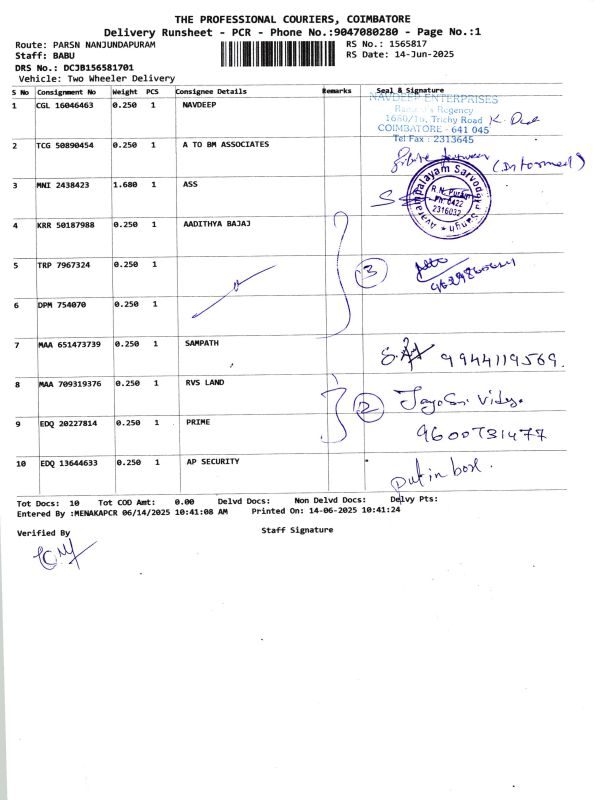 THE PROFESSIONAL COURIERS, COIMBATORE
Delivery Runsheet - PCR - Phone No.:9047080280 - Page No.:1
Route: PARSN NANJUNDAPURAM RS No.: 1565817
Staff: BABU RS Date: 14-Jun-2025
DRS No.: DCJB156581701
Vehicle: Two Wheeler Delivery
S No Consignment No Weight PCS Consignee Details Remarks Seal & Signature
1 CGL 16046463 0.250 1 NAVDEEP
NAVDEEP ENTERPRISES
Regency
Trichy Road
COIMBATORE - 641 045
Tel Fax : 2313645
2 TCG 50890454 0.250 1 A TO BM ASSOCIATES
(Informed)
3 MNI 2438423 1.680 1 ASS
Avarampalayam Sarvodaya Sangh
Ph 0422
2316032
4 KRR 50187988 0.250 1 AADITHYA BAJAJ
5 TRP 7967324 0.250 1 3
6 DPM 754070 0.250 1
7 MAA 651473739 0.250 1 SAMPATH 9944119569.
8 MAA 709319376 0.250 1 RVS LAND 2
9 EDQ 20227814 0.250 1 PRIME 9600731477
10 EDQ 13644633 0.250 1 AP SECURITY Put in box.
Tot Docs: 10 Tot COD Amt: 0.00 Delvd Docs: Non Delvd Docs: Delvy Pts:
Entered By :MENAKAPCR 06/14/2025 10:41:08 AM Printed On: 14-06-2025 10:41:24
Verified By Staff Signature